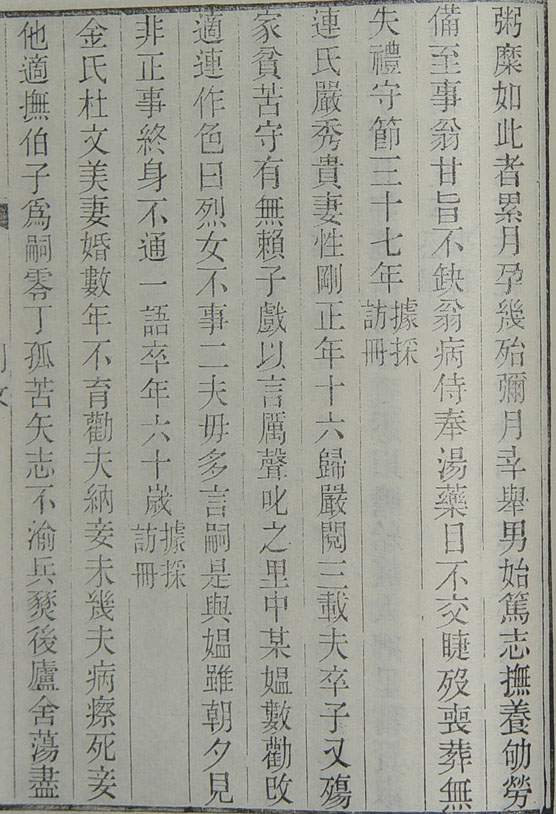 粥糜如此者累月孕幾殆彌月幸舉男始篤志撫養劬勞
備至事翁甘旨不缺翁病侍奉湯藥目不交睫歿喪葬無
失禮守節三十七年據採訪冊
連氏嚴秀貴妻性剛正年十六歸嚴閱三載夫卒子又殤
家貧苦守有無賴子戲以言厲聲叱之里中某媼數勸改
適連作色曰烈女不事二夫毋多言嗣是與媼雖朝夕見
非正事終身不通一語卒年六十歲據採訪冊
金氏杜文美妻婚數年不育勸夫納妾未幾夫病瘵死妾
他適撫伯子爲嗣零丁孤苦矢志不渝兵燹後廬舍蕩盡